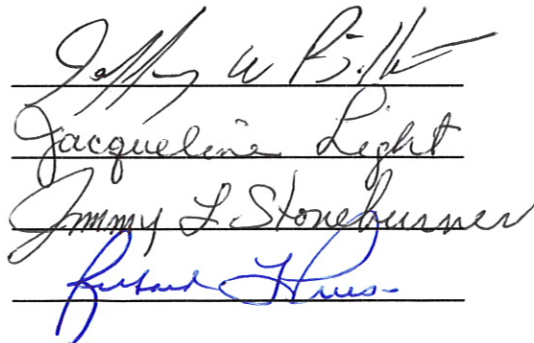 Jeffrey W
Jacqueline Light
Jimmy L Stoneburner
Richard